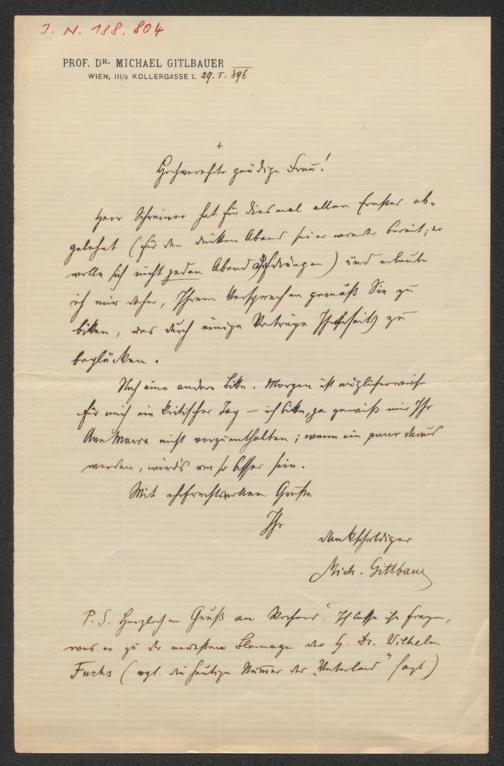 J. N. 188.804
PROF. DR. MICHAEL GITLBAUER
WIEN, III/2 KOLLERGASSE 1. 29. I. 896
+
Hochverehrte gnädige Frau!
Herr Schreiner hat für diesmal allen Ernstes ab-
gelehnt (für den dritten Abend sei er wieder bereit; er
wolle sich nicht jeden Abend aufdrängen) und erlaube
ich mir daher, Ihrem Versprechen gemäß Sie zu
bitten, uns durch einige Vorträge Ihrerseits zu
beglücken.
Noch eine andere Bitte. Morgen ist
für mich ein kritischer Tag – ich bitte, ja gewiß mir Ihr
Ave Maria nicht vorzuenthalten; wenn ein paar daraus
werden, wird's um so besser sein.
Mit ehrfurchtsvollem Gruße
Ihr
dankschuldiger
Mich. Gitlbauer
P.S. Herzlichen Gruß an Ich lasse ihn fragen,
was er zu der neuesten Blamage des H. Dr. Wilhelm
Fuchs (vgl. die heutige Nummer des „Vaterland" sagt)